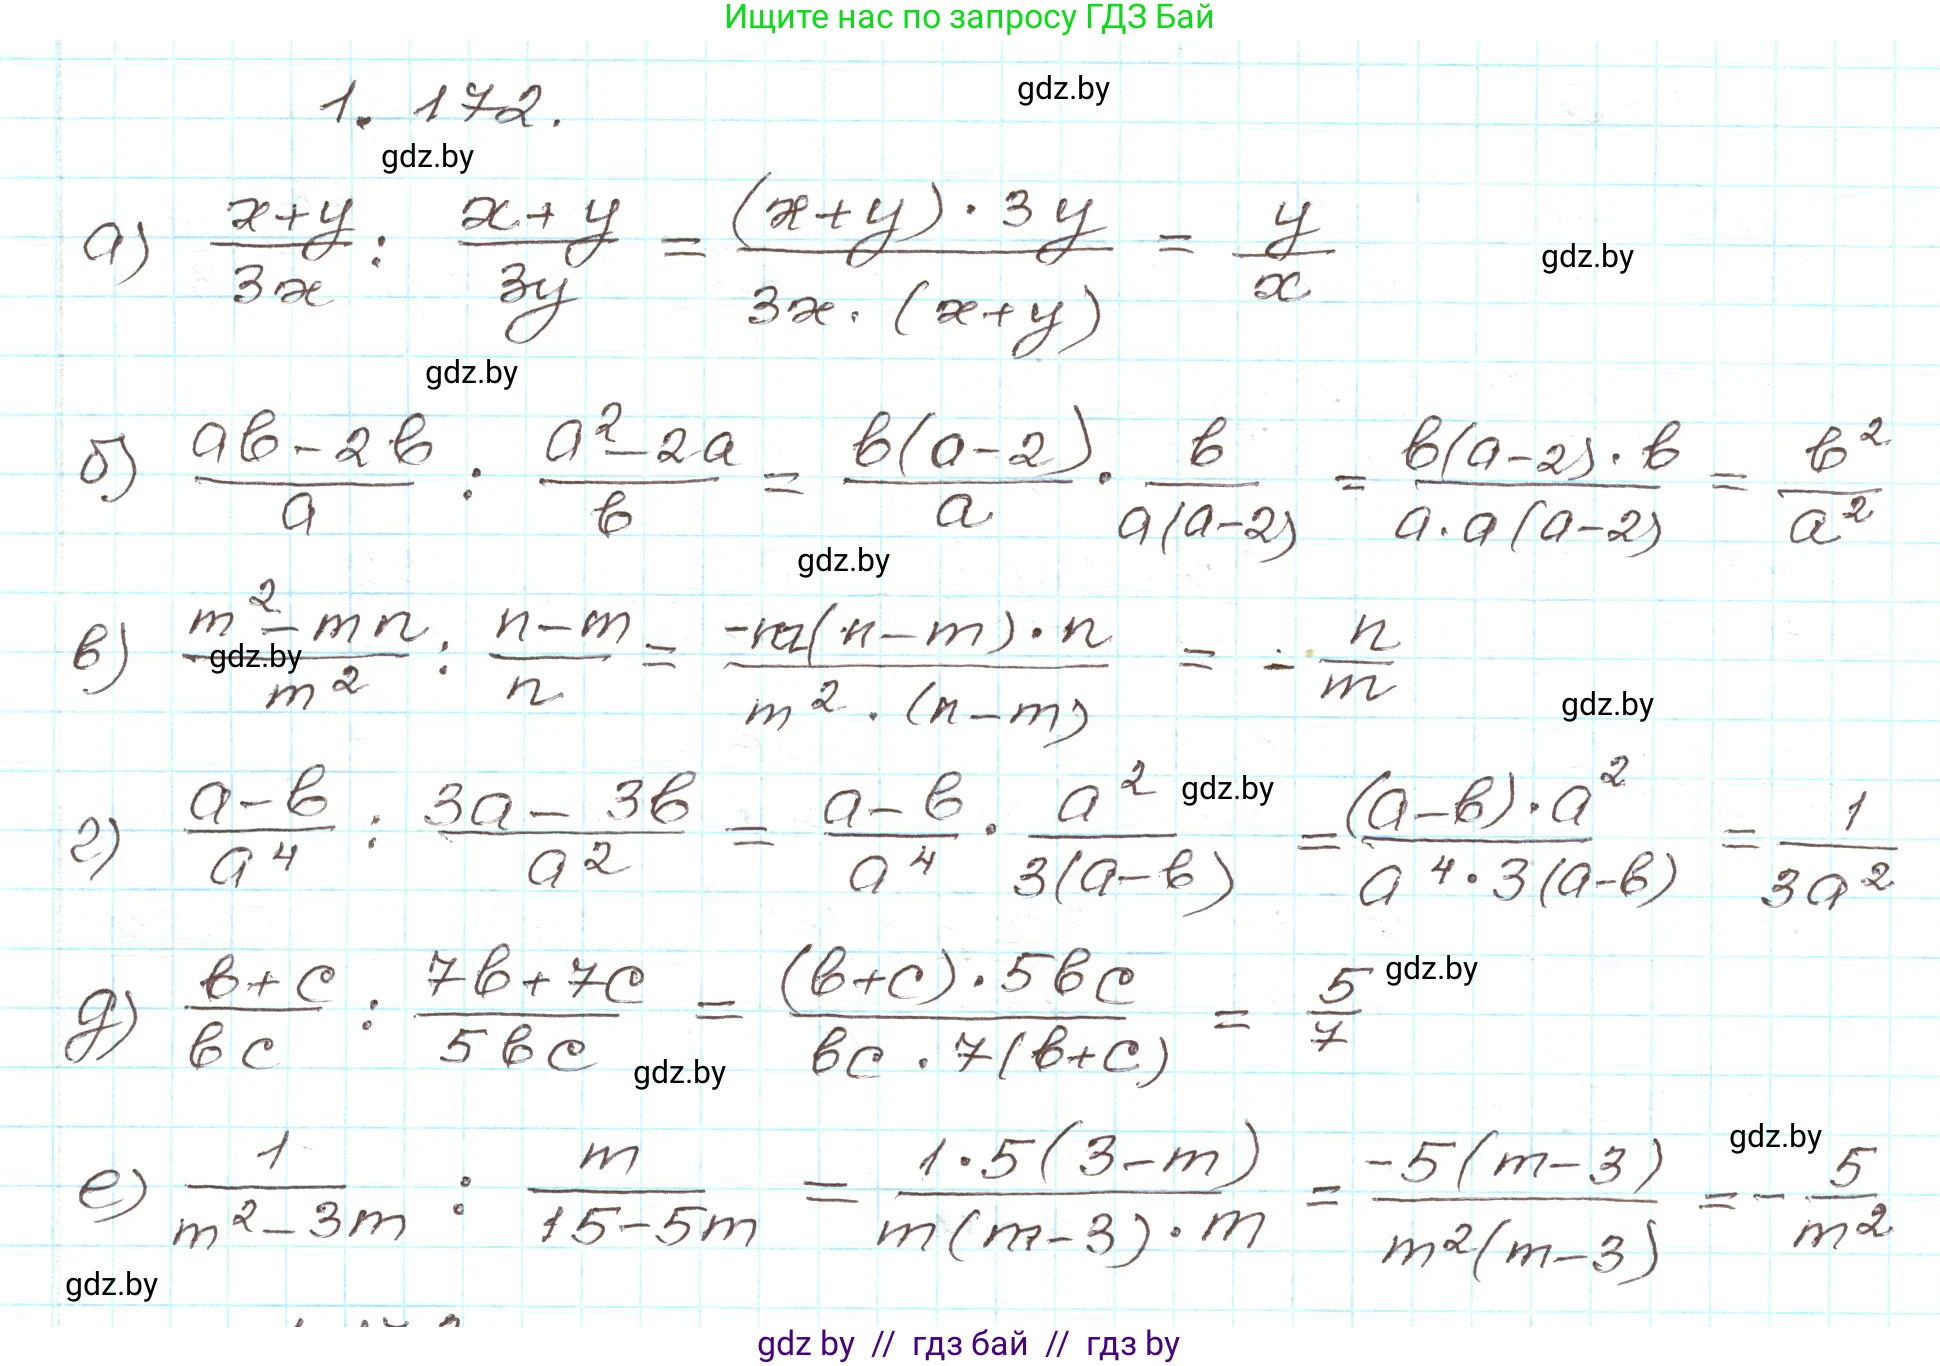 Ищите нас по запросу ГДЗ Бай
1. 172.
gdz.by
gdz.by
а) (x+y)/(3x) : (x+y)/(3y) = ((x+y)·3y)/(3x·(x+y)) = y/x
gdz.by
gdz.by
б) (ав-2в)/a : (a²-2a)/в = (в(a-2))/a · в/(a(a-2)) = (в(a-2)·в)/(a·a(a-2)) = в²/a²
gdz.by
в) (m²-mn)/m² : (n-m)/n = (-m(n-m)·n)/(m²·(n-m)) = -n/m
gdz.by
gdz.by
г) (a-в)/a⁴ : (3a-3в)/a² = (a-в)/a⁴ · a²/(3(a-в)) = ((a-в)·a²)/(a⁴·3(a-в)) = 1/(3a²)
gdz.by
д) (в+с)/(вс) : (7в+7с)/(5вс) = ((в+с)·5вс)/(вс·7(в+с)) = 5/7
gdz.by
gdz.by
е) 1/(m²-3m) : m/(15-5m) = (1·5(3-m))/(m(m-3)·m) = (-5(m-3))/(m²(m-3)) = -5/m²
gdz.by
gdz.by
gdz by // гдз бай // гдз by